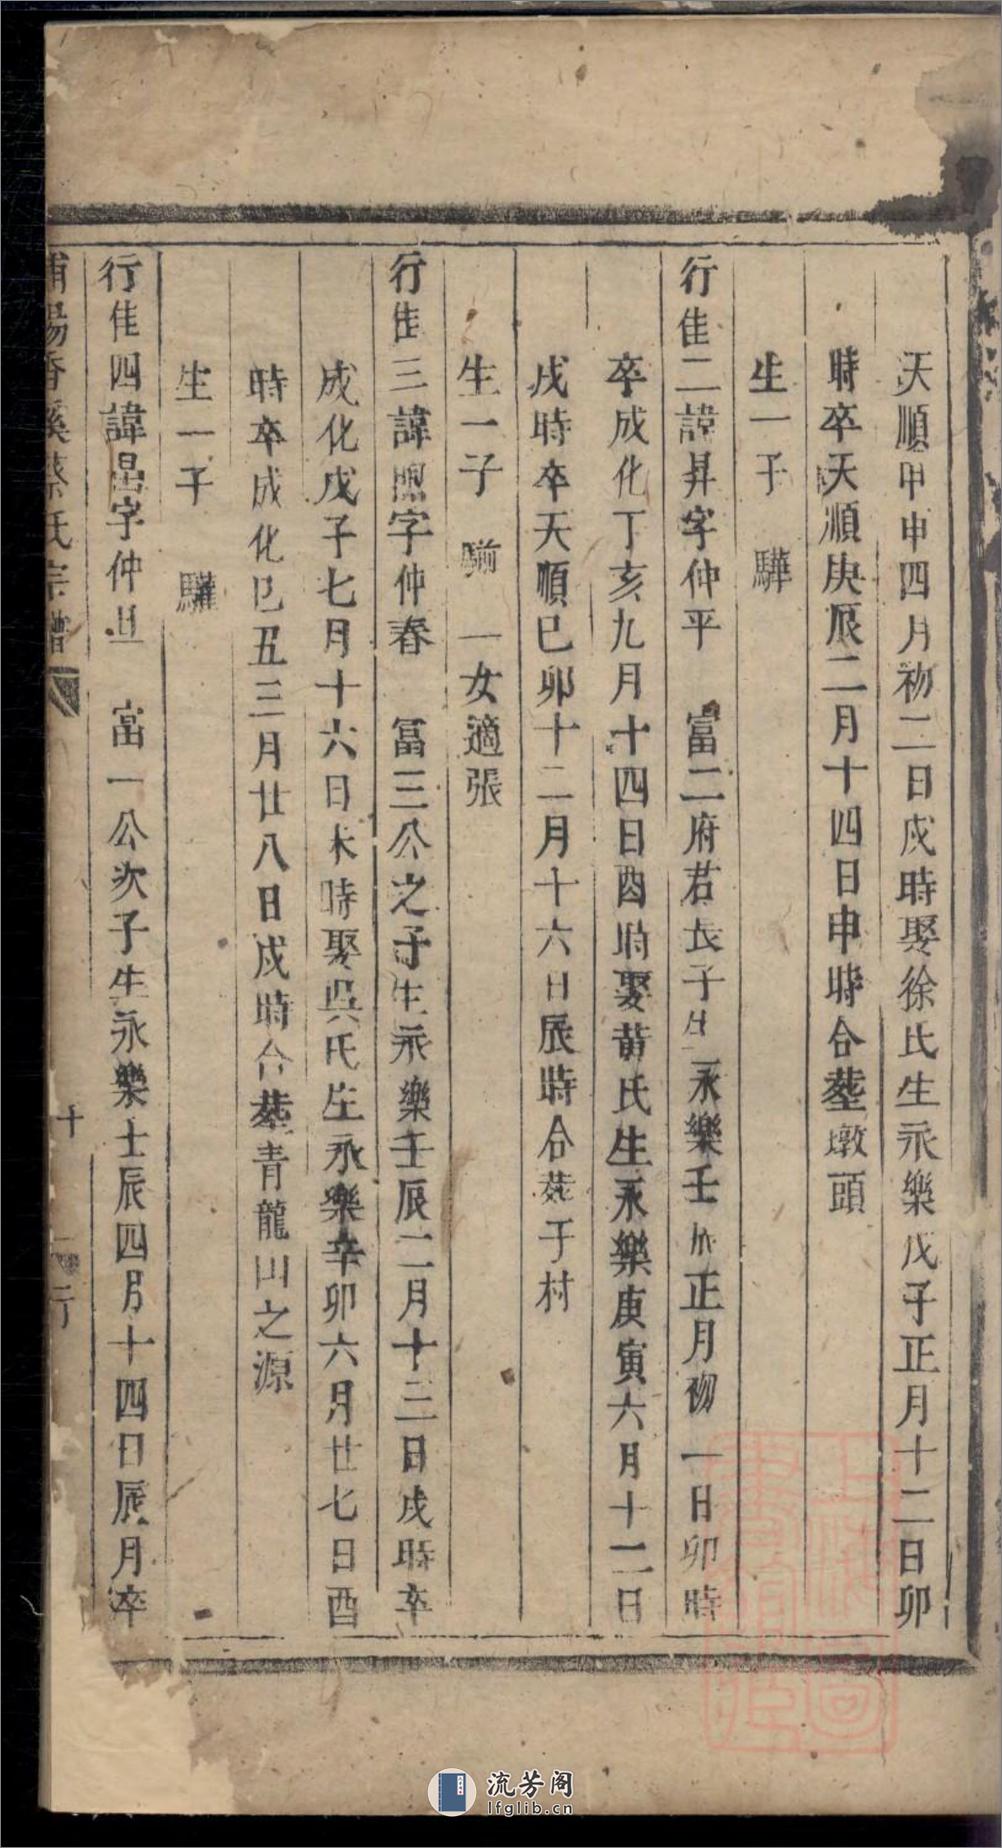 天順甲申四月初二日戌時娶徐氏生永樂戊子正月十二日卯
時卒天順庚辰二月十四日申時合塟墩頭
生一子 驊
行佳二諱昇字仲平 富二府君長子生永樂壬辰正月初一日卯時
卒成化丁亥九月十四日酉時娶黃氏生永樂庚寅六月十二日
戌時卒天順己卯十二月十六日辰時合塟于村
生一子 一女適張
行佳三諱照字仲春 富三公之子生永樂壬辰二月十三日戌時卒
成化戊子七月十六日未時娶吳氏生永樂辛卯六月廿七日酉
時卒成化己五三月廿八日戌時合塟青龍山之源
生一子 驊
行佳四諱昌字仲旦 富一公次子生永樂士辰四月十四日辰月卒
浦陽香溪蔡氏宗譜 十
流芳阁
lfglib.cn